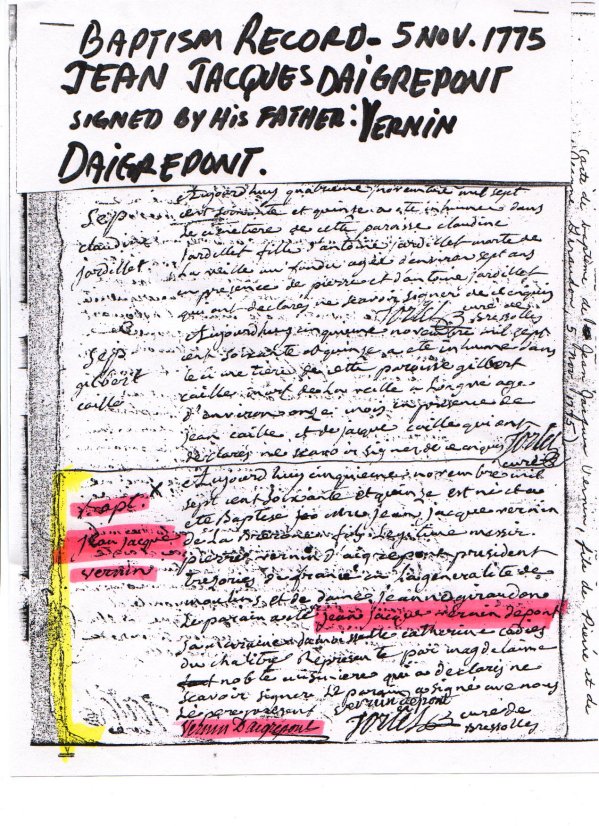 BAPTISM RECORD - 5 NOV. 1775
JEAN JACQUES DAIGREPONT
SIGNED BY HIS FATHER: VERNIN
DAIGREPONT.
Sep
claudine
jardillet
aujourdhuy quatrieme novembre mil sept
cent soixante et quinze a ete inhumee dans
le cimetiere de cette paroisse claudine
jardillet fille d'antoine jardillet morte de
la veille agée d'environ sept ans
en presence de pierre et d'antoine jardillet
qui ont declarés ne scavoir signer de
curé de
Bressolles
Sep
gilbert
caille
aujourdhuy cinquieme novembre mil sept
cent soixante et quinze a ete inhume dans
le cimetiere de cette paroisse gilbert
caille mort de la veille age
d'environ onze mois en presence de
jean caille et de jaque caille qui ont
declarés ne scavoir signer de
curé
Bapt.
Jean Jacque
vernin
aujourdhuy cinquieme novembre mil
sept cent soixante et quinze est né et a
ete Baptise jean jacque vernin
de la fils legitime messir
pierre vernin d'aigrepont president
tresories de france en la generalité de
moulins et de dame jeanne giraudone
le parain a ete jean jacque vernin depont
la maraine catherine
du chalitre represente par magdelaine
noble cuisiniere qui a declaris ne
scavoir signer le parain a signe avec nous
le pere present
vernin depont
Vernin Daigrepont
curé de
Bressolles
acte de bapteme de Jean Jacques Vernin, fils de Pierre et de
Jeanne Giraudon, 5 nov. 1775)